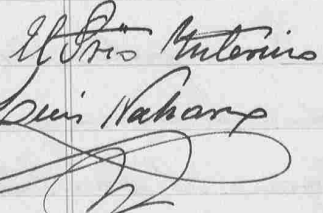 El Srio Interino
Luis Naharro